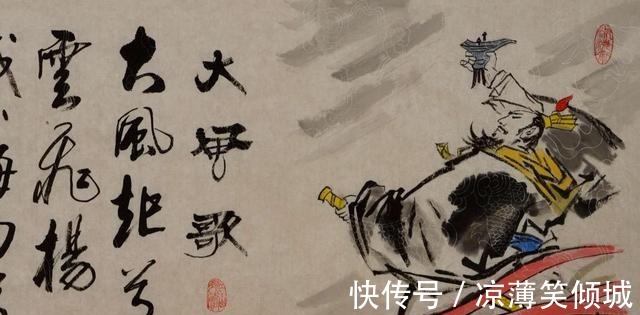 大风歌
大風起兮
雲飛楊
威
海内
快传号 / 凉薄笑倾城